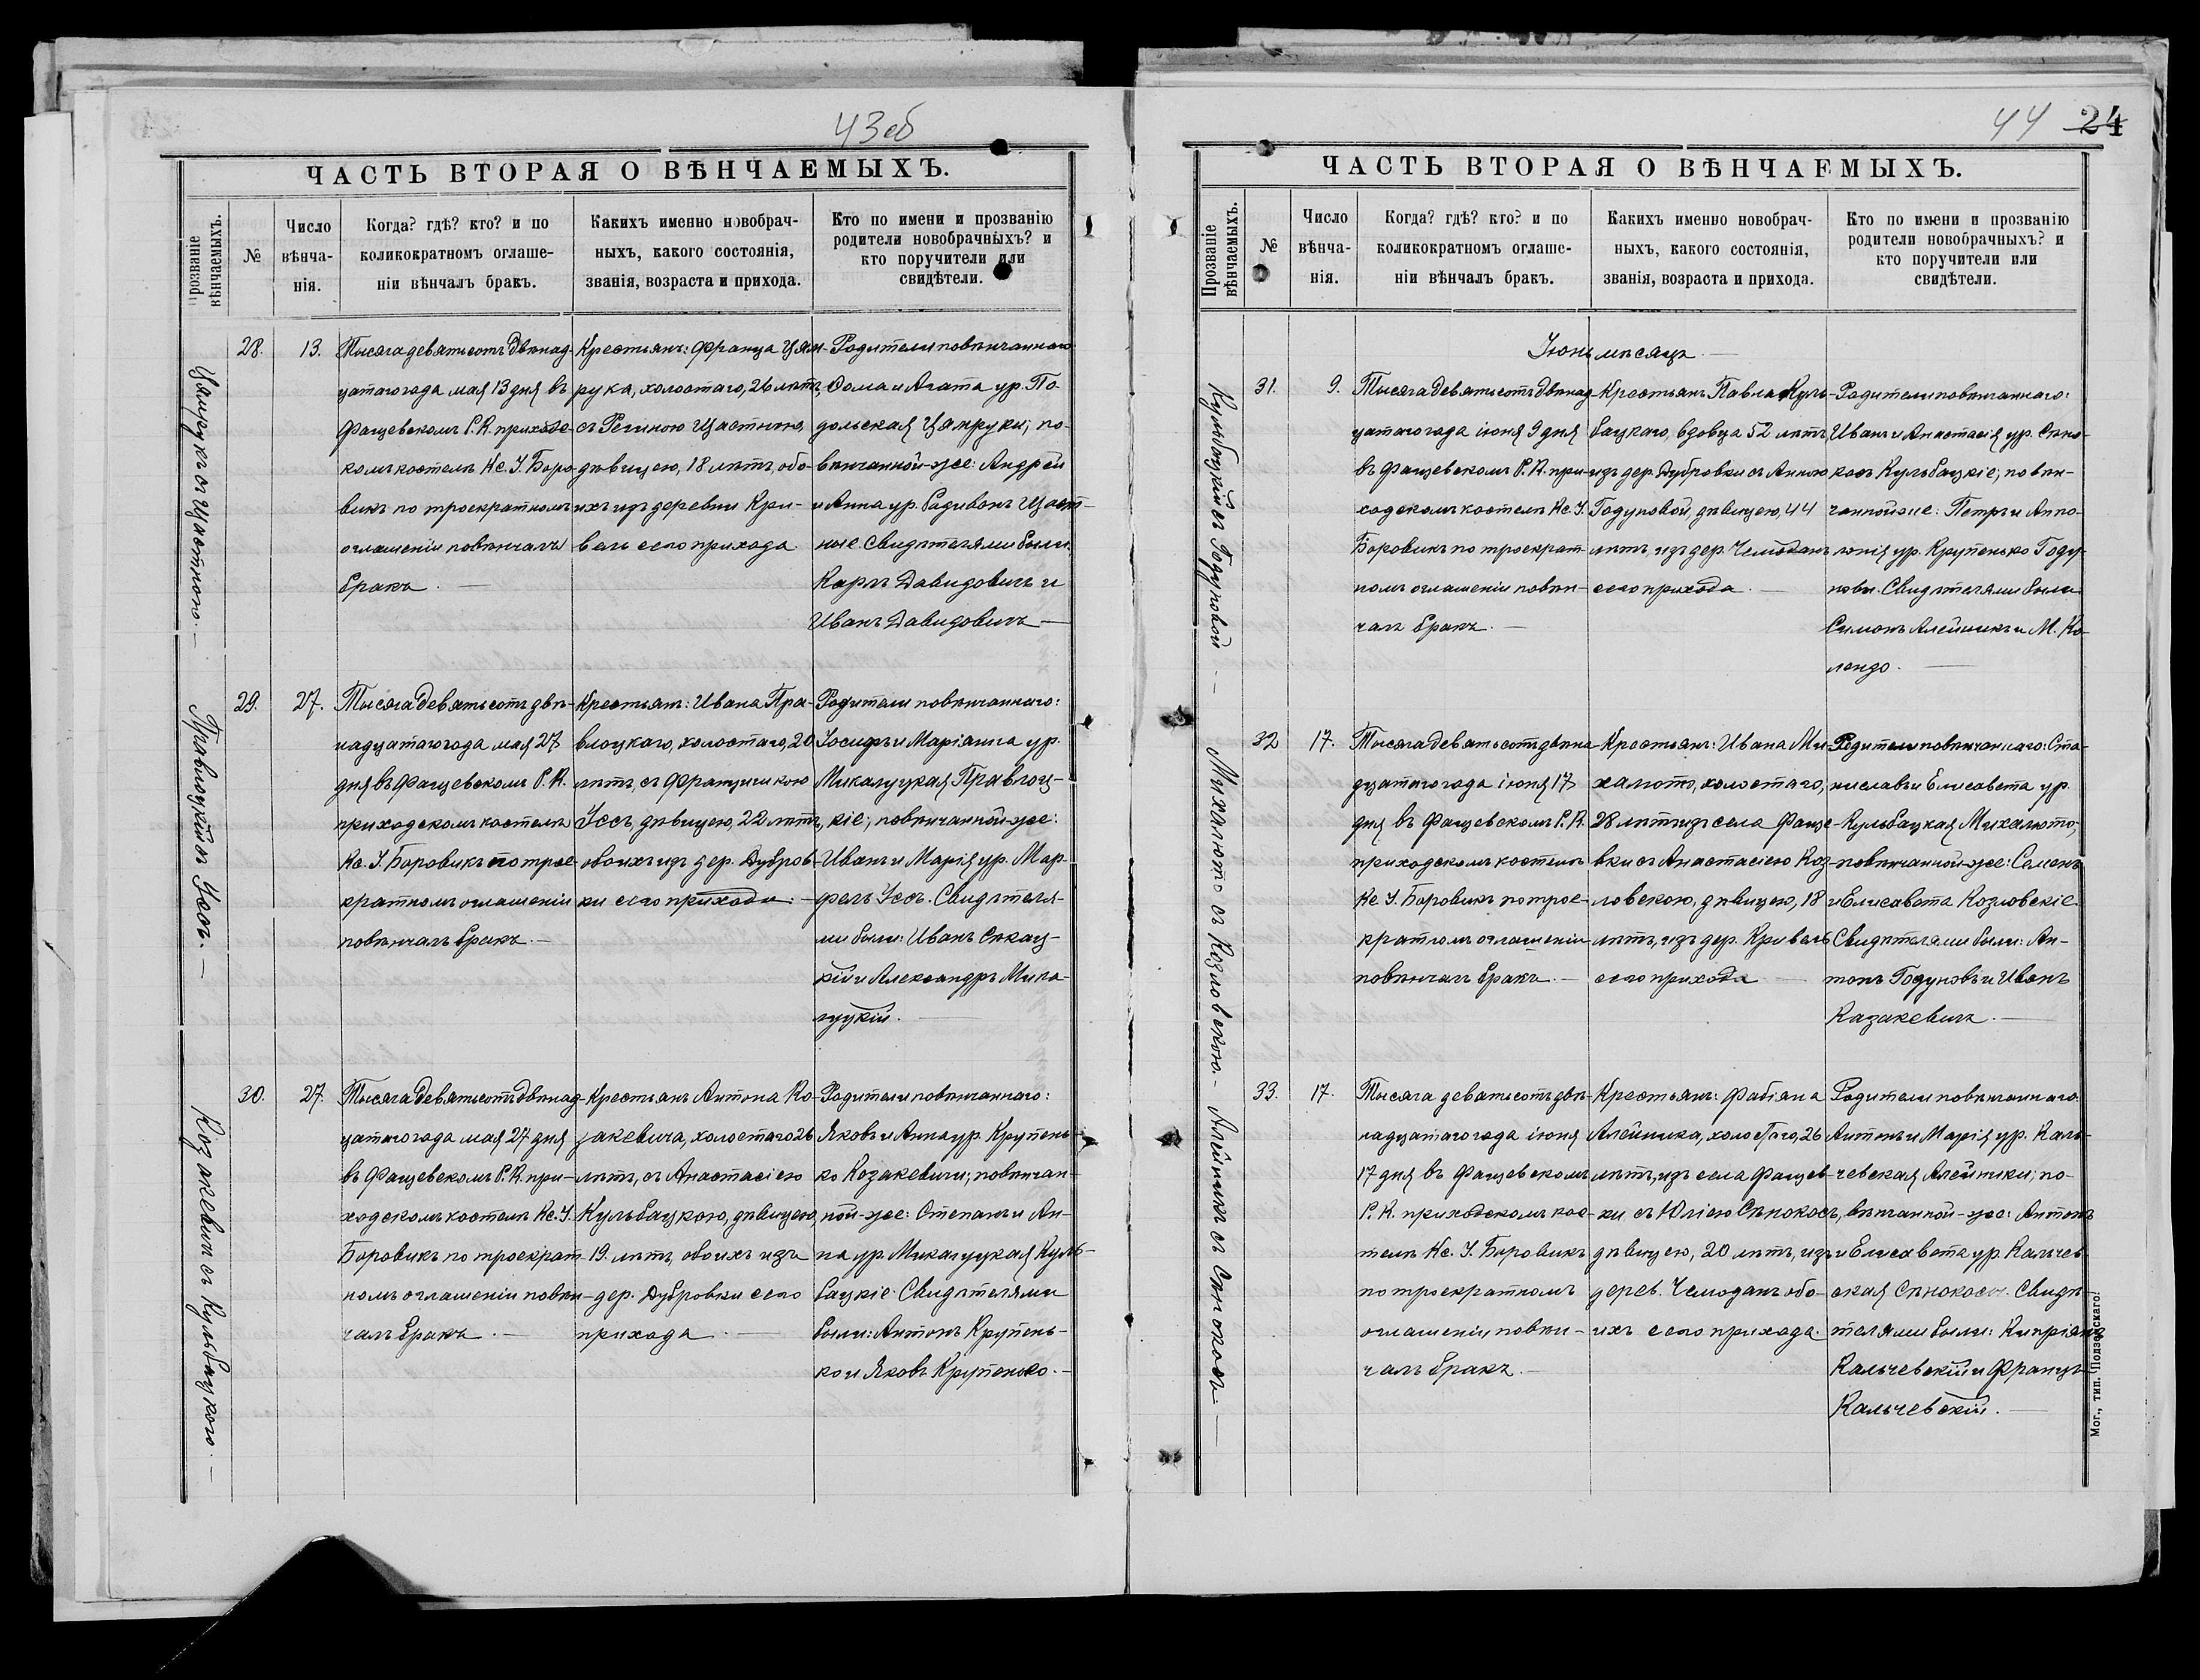 43об
ЧАСТЬ ВТОРАЯ О ВѢНЧАЕМЫХЪ.
Прозваніе вѣнчаемыхъ.
№
Число вѣнча-нія.
Когда? гдѣ? кто? и по
коликократномъ оглаше-
ніи вѣнчалъ бракъ.
Каквхъ именно новобрач-
ныхъ, какого состоянія,
званія, возраста и прихода.
Кто по имени и прозванію
родители новобрачныхъ? и
кто поручители или
свидѣтели.
Цямрукъ съ Щастною.
28.
13.
Тысяча девятьсотъ двѣнад-
цатаго года мая 13 дня въ
Фащевскомъ Р. К. приходс-
комъ костелѣ Кс. І. Боро-
викъ по троекратномъ
оглашеніи повѣнчалъ
бракъ.
Крестьянъ: Франца Цям-
рука, холостаго, 26 лѣтъ,
съ Региною Щастною,
дѣвицею, 18 лѣтъ, обо-
ихъ изъ деревни Кри-
вель сего прихода.
Родители повѣнчаннаго
Ѳома и Агата ур. По-
дольская Цямруки; по-
вѣнчанной-же: Андрей
и Анна ур. Радивонъ Щаст-
ные. Свидѣтелями были:
Карлъ Давидовичъ и
Иванъ Давидовичъ
Правлоцкій съ Уссъ.
29.
27.
Тысяча девятьсотъ двѣ-
надцатаго года мая 27
дня въ Фащевскомъ Р. К.
приходскомъ костелѣ
Кс. І. Боровикъ по трое-
кратномъ оглашеніи
повѣнчалъ бракъ.
Крестьян: Ивана Пра-
влоцкаго, холостаго, 20
лѣтъ съ Францишкою
Уссъ, дѣвицею, 22 лѣтъ,
обоихъ изъ дер. Дубров-
ки сего прихода.
Родители повѣнчаннаго:
Іосифъ и Маріанна ур.
Микалуцкая Правлоц-
кіе; повѣнчанной-же:
Иванъ и Марія ур. Мар-
фель Уссъ. Свидѣтеля-
ми были: Иванъ Сѣкац-
кій и Александръ Мика-
луцкій.
Козакевичъ съ Кульбацкою.
30.
27.
Тысяча девятьсотъ двѣнад-
цатаго года мая 27 дня
въ Фащевскомъ Р. К. при-
ходскомъ костелѣ Кс. І.
Боровикъ по троекрат-
номъ оглашеніи повѣн-
чалъ бракъ.
Крестьянъ Антона Ко-
закевича, холостаго 26
лѣтъ, съ Анастасіею
Кульбацкою, дѣвицею,
19. лѣтъ, обоихъ изъ
дер. Дубровки сего
прихода.
Родители повѣнчаннаго:
Яковъ и Анна ур. Крупень-
ко Козакевичи; повѣнчан-
ной-же: Степанъ и Ан-
на ур. Микалуцкая Куль-
бацкіе. Свидѣтелями
были: Антонъ Крупень-
ко и Яковъ Крупенько.
44 24
ЧАСТЬ ВТОРАЯ О ВѢНЧАЕМЫХЪ.
Прозваніе вѣнчаемыхъ.
№
Число вѣнча-нія.
Когда? гдѣ? кто? и по
коликократномъ оглаше-
ніи вѣнчалъ бракъ.
Какихъ именно новобрач-
ныхъ, какого состоянія,
званія, возраста и прихода.
Кто по имени и прозванію
родители новобрачныхъ? и
кто поручители или
свидѣтели.
Іюнь мѣсяцъ.
Кульбацкій съ Годуновой
31.
9.
Тысяча девятьсотъ двѣнад-
цатаго года іюня 9 дня
въ Фащевскомъ Р. К. при-
ходскомъ костелѣ Кс. І.
Боровикъ по троекрат-
номъ оглашеніи повѣн-
чалъ бракъ.
Крестьянъ Павла Куль-
бацкаго, вдовца 52 лѣтъ
изъ дер. Дубровки съ Анною
Годуновой, дѣвицею, 44
лѣтъ, изъ дер. Чемоданъ
сего прихода.
Родители повѣнчаннаго:
Иванъ и Анастасія ур. Сѣно-
косъ Кульбацкіе; повѣн-
чанной же: Петръ и Аппо-
лонія ур. Крупенько Году-
новы. Свидѣтелями были
Симонъ Алейникъ и М. Ко-
лендо.
Михалюто съ Козловскою.
32
17.
Тысяча девятьсотъ двѣна-
дцатаго года іюня 17
дня въ Фащевскомъ Р. К.
приходскомъ костелѣ
Кс. І. Боровикъ по трое-
кратномъ оглашеніи
повѣнчалъ бракъ.
Крестьянъ: Ивана Ми-
халюто, холостаго,
28 лѣтъ изъ села Фаще-
вки съ Анастасіею Коз-
ловскою, дѣвицею, 18
лѣтъ, изъ дер. Кривель
сего прихода
Родители повѣнчаннаго: Ста-
ниславъ и Елисавета ур.
Кульбацкая Михалюто;
повѣнчанной-же: Семенъ
и Елисавета Козловскіе.
Свидѣтелями были: Ан-
тонъ Годуновъ и Иванъ
Казакевичъ.
Алейникъ съ Сѣнокосъ
33.
17.
Тысяча девятьсотъ двѣ-
надцатаго года іюня
17 дня въ Фащевскомъ
Р. К. приходскомъ кос-
телѣ Кс. І. Боровикъ
по троекратномъ
оглашеніи повѣн-
чалъ бракъ.
Крестьянъ: Фабіана
Алейника, холостаго, 26
лѣтъ, изъ села Фащев-
ки, съ Юліею Сѣнокосъ,
дѣвицею, 20 лѣтъ, изъ
дерев. Чемоданъ обо-
ихъ сего прихода.
Родители повѣнчаннаго
Антонъ и Марія ур. Каль-
чевская Алейники; по-
вѣнчанной-же: Антонъ
и Елисавета ур. Кальчев-
ская Сѣнокосы. Свидѣ-
телями были: Кипріянъ
Кальчевскій и Францъ
Кальчевскій.
Мог., тип. Подземскаго.